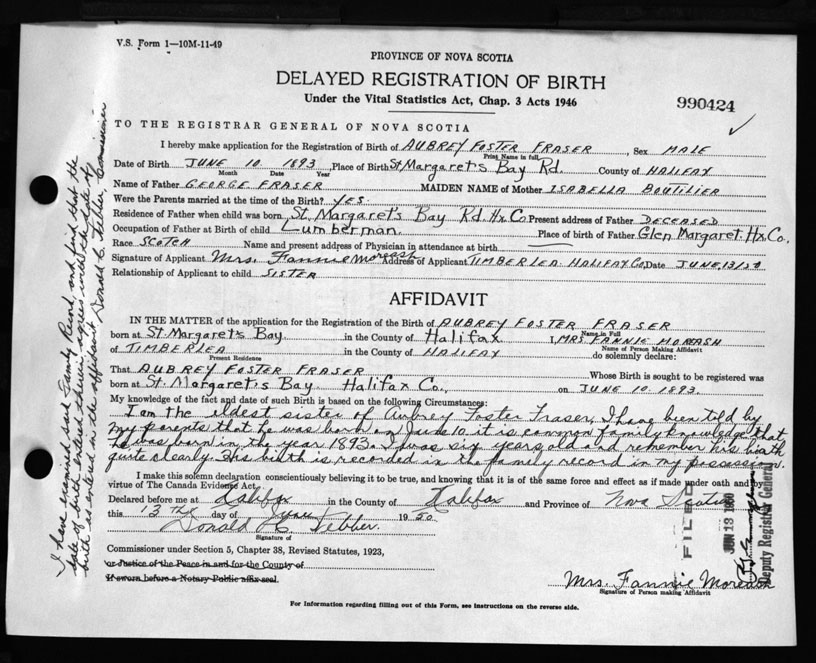 V.S. Form 1—10M-11-49
PROVINCE OF NOVA SCOTIA
DELAYED REGISTRATION OF BIRTH
Under the Vital Statistics Act, Chap. 3 Acts 1946
990424
TO THE REGISTRAR GENERAL OF NOVA SCOTIA
I hereby make application for the Registration of Birth of AUBREY FOSTER FRASER, Sex MALE
Print Name in full
Date of Birth JUNE 10. 1893, Place of Birth St. Margaret's Bay Rd. County of HALIFAX
Month Date Year
Name of Father GEORGE FRASER MAIDEN NAME of Mother ISABELLA BOUTILIER
Were the Parents married at the time of the Birth? YES.
Residence of Father when child was born St. Margaret's Bay Rd. Hx. Co. Present address of Father DECEASED
Occupation of Father at Birth of child Lumberman. Place of birth of Father Glen Margaret. Hx. Co.
Race SCOTCH Name and present address of Physician in attendance at birth
Signature of Applicant Mrs. Fannie Moreash Address of Applicant TIMBERLEA. HALIFAX Co, Date JUNE, 13/50
Relationship of Applicant to child SISTER
AFFIDAVIT
IN THE MATTER of the application for the Registration of the Birth of AUBREY FOSTER FRASER
Name in Full
born at St. Margaret's Bay in the County of Halifax I, MRS. FANNIE MOREASH
Name of Person Making Affidavit
of TIMBERLEA in the County of HALIFAX do solemnly declare:
Present Residence
That AUBREY FOSTER FRASER Whose Birth is sought to be registered was
born at St. Margaret's Bay Halifax Co., on JUNE 10. 1893.
My knowledge of the fact and date of such Birth is based on the following Circumstances:
I am the eldest sister of Aubrey Foster Fraser, I have been told by
my parents that he was born on June 10. it is common family knowledge that
he was born in the year 1893. I was six years old and remember his birth
quite clearly. His birth is recorded in the family record in my possession.
I make this solemn declaration conscientiously believing it to be true, and knowing that it is of the same force and effect as if made under oath and by
virtue of The Canada Evidence Act.
Declared before me at Halifax in the County of Halifax and Province of Nova Scotia
this 13th day of June 1950
Donald C. Webber
Signature of
Commissioner under Section 5, Chapter 38, Revised Statutes, 1923,
or Justice of the Peace in and for the County of
If sworn before a Notary Public affix seal.
Mrs. Fannie Moreash
Signature of Person making Affidavit
For Information regarding filling out of this Form, see Instructions on the reverse side.
I have examined said Family Record, and find that the
date of birth entered therein agrees with the date of
birth as entered in the affidavit. Donald C. Webber, Commissioner
FILED
JUN 13 1950
Deputy Registrar General